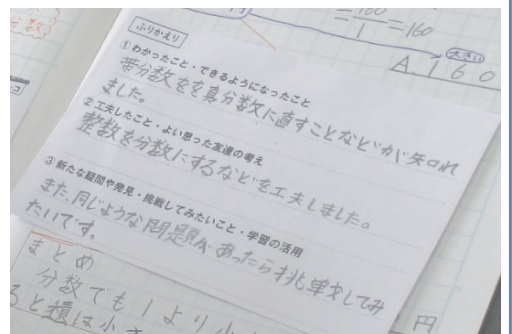 分数
100
= ─ = 160
1
大きい
A. 160
ふりかえり
① わかったこと・できるようになったこと
帯分数をを真分数に直すことなどが知れ
ました。
② 工夫したこと・よい思った友達の考え
整数を分数にするなどを工夫しました。
③ 新たな疑問や発見・挑戦してみたいこと・学習の活用
また、同じような問題があったら挑戦してみ
たいです。
まとめ
分数でも1より小
ると積は小さ
円